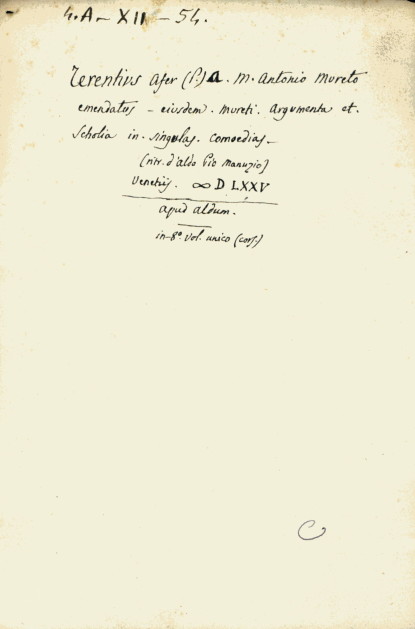 4.A-XII-54.
Terentius Afer (P.) a. M. Antonio Mureto
emendatus - eiusdem. Mureti. Argumenta et.
Scholia in. singulas. comoedias-
(ritr. d'aldo Pio Manuzio)
Venetiis. ∞ D LXXV
apud aldum.
in-8º vol. unico (cors.)
C